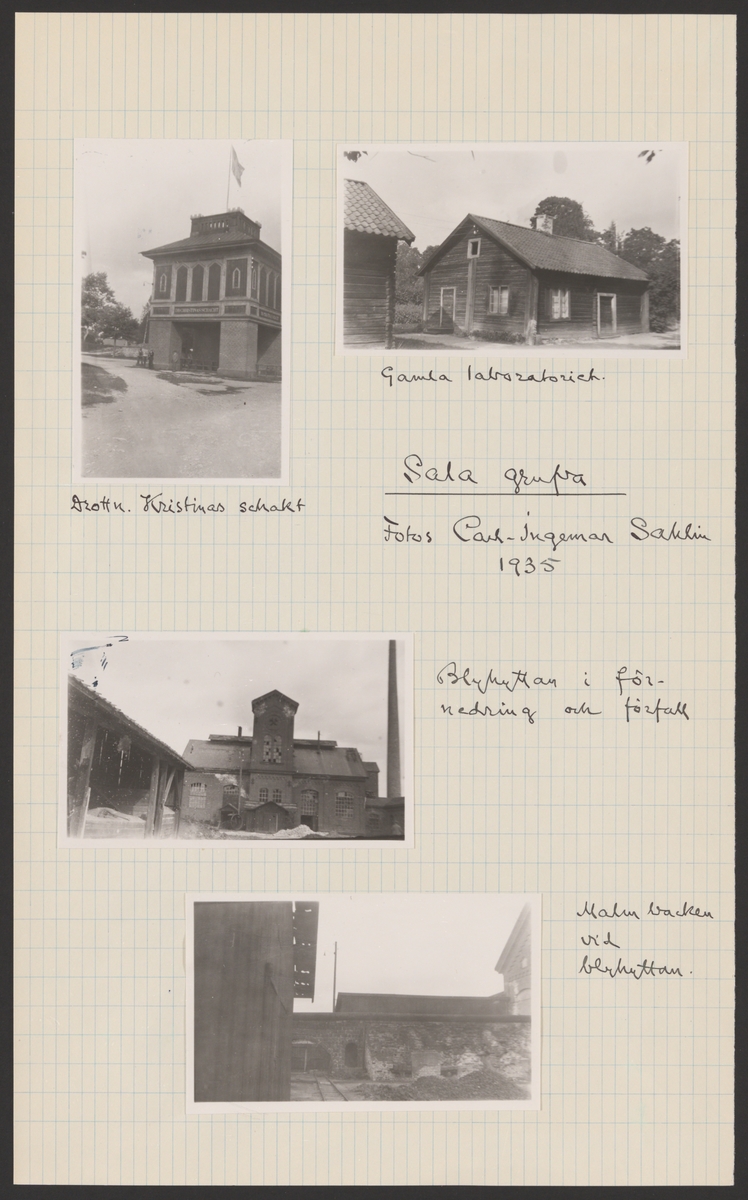 Gamla laboratoriet.
Drottn. Kristinas schakt
Sala grufva
Fotos Carl-Ingemar Sahlin
1935
Blyhyttan i för-
nedring och förfall
Malmbacken
vid
blyhyttan.